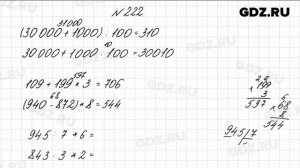 GDZ.RU
№ 222
31000
(30 000 + 1000) : 100 = 310
10
30 000 + 1000 : 100 = 30010
597
109 + 199 × 3 = 706
68
(940 - 872) × 8 = 544
945 : 7 × 6 =
843 : 3 × 2 =
2 2
× 199
3
597
6
× 68
8
544
945 | 7
GDZ.RU